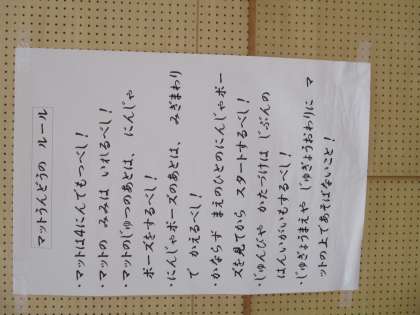 マットうんどうの ルール
・マットは4にんでもつべし!
・マットの みみは いれるべし!
・マットのじゅつのあとは、 にんじゃ
ポーズをするべし!
・にんじゃポーズのあとは、 みぎまわり
で かえるべし!
・かならず まえのひとのにんじゃポー
ズを見てから スタートするべし!
・じゅんびや かたづけは じぶんの
はんいがいもするべし!
・じゅぎょうまえや じゅぎょうおわりに マ
ットの上であそばないこと!